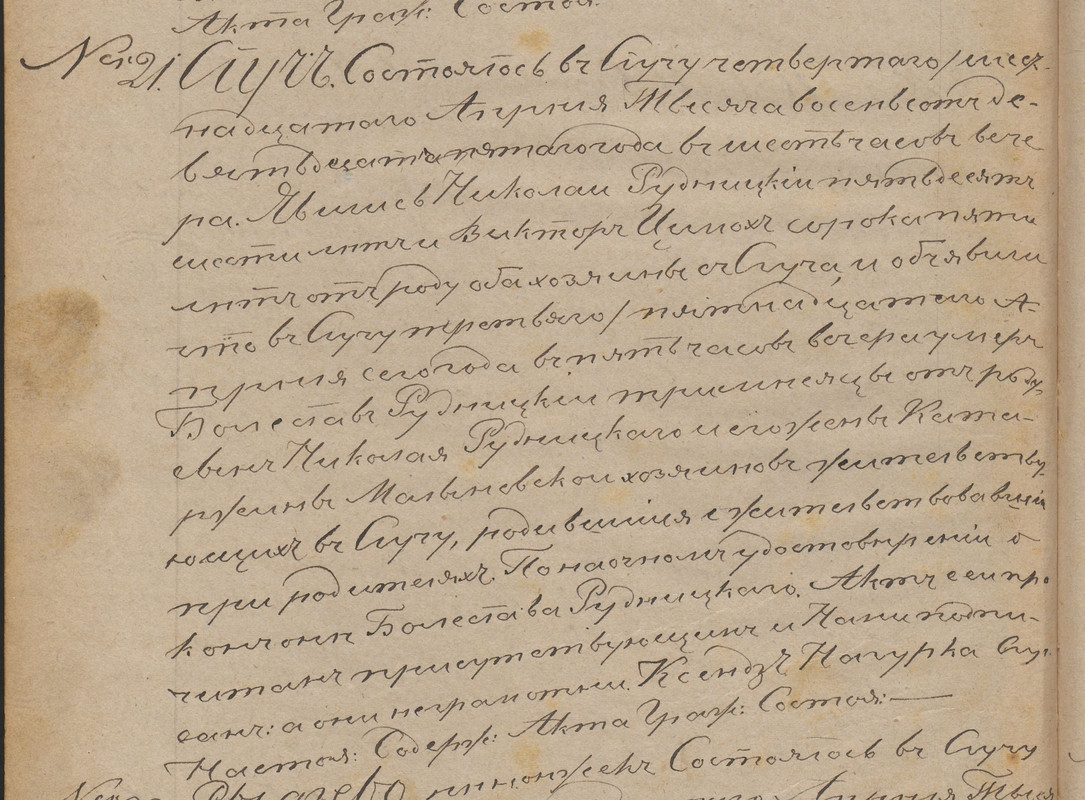 Акта Граж: Состоя:
№ 21. Случ. Состоялось въ Случу четвертаго/шест-
надцатаго Апрѣля Тысяча восемьсотъ де-
вятьдесятъ пятаго года въ шесть часовъ вече
ра. Явились Николай Рудницкій пятьдесятъ
шести лѣтъ и Викторъ Цимохъ сорока пяти
лѣтъ отъ роду оба хозяины съ Случа, и объявили
что въ Случу третьяго/пятнадцатаго А-
прѣля сего года въ пять часовъ вечера умеръ
Болеславъ Рудницкій три мѣсяцы отъ роду,
сынъ Николая Рудницкаго и его жены Ката-
ржины Малиновской хозяиновъ жительству-
ющихъ въ Случу, родившійся и жительствовавшій
при родителяхъ. По наочномъ удостовѣреніи о
кончинѣ Болеслава Рудницкаго. Актъ сей про
читанъ присутствующимъ и Нами подпи-
санъ: а они неграмотны. Ксендзъ Нагурка
Настоя: Содерж: Акта Граж: Состоя: —
Состоялось въ Случу
Апрѣля Тыся